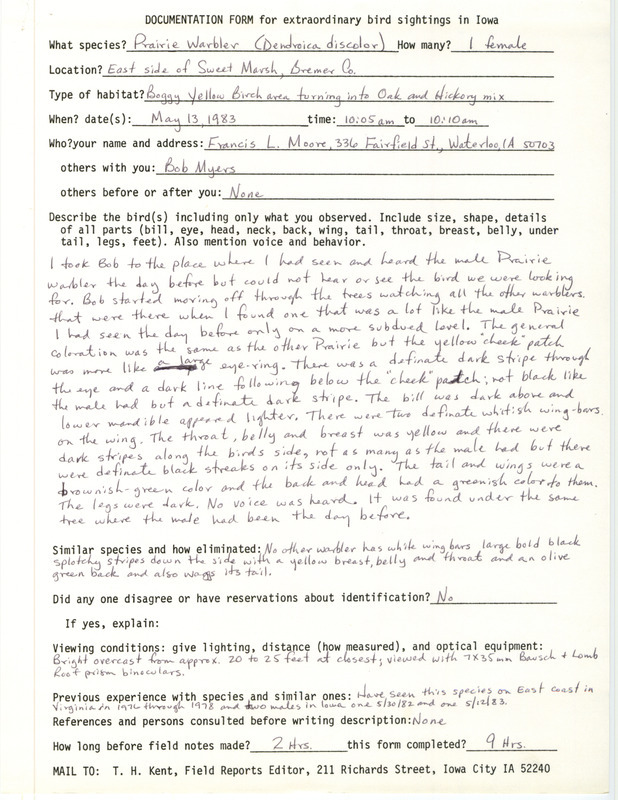 DOCUMENTATION FORM for extraordinary bird sightings in Iowa
What species? Prairie Warbler (Dendroica discolor) How many? 1 female
Location? East side of Sweet Marsh, Bremer Co.
Type of habitat? Boggy Yellow Birch area turning into Oak and Hickory mix
When? date(s): May 13, 1983 time: 10:05 am to 10:10 am
Who? your name and address: Francis L. Moore, 336 Fairfield St., Waterloo, IA 50703
others with you: Bob Myers
others before or after you: None
Describe the bird(s) including only what you observed. Include size, shape, details
of all parts (bill, eye, head, neck, back, wing, tail, throat, breast, belly, under
tail, legs, feet). Also mention voice and behavior.
I took Bob to the place where I had seen and heard the male Prairie
warbler the day before but could not hear or see the bird we were looking
for. Bob started moving off through the trees watching all the other warblers
that were there when I found one that was a lot like the male Prairie
I had seen the day before only on a more subdued level. The general
coloration was the same as the other Prairie but the yellow "cheek" patch
was more like a large eye-ring. There was a definate dark stripe through
the eye and a dark line following below the "cheek" patch; not black like
the male had but a definate dark stripe. The bill was dark above and
lower mandible appeared lighter. There were two definate whitish wing-bars
on the wing. The throat, belly and breast was yellow and there were
dark stripes along the birds side, not as many as the male had but there
were definate black streaks on its side only. The tail and wings were a
brownish-green color and the back and head had a greenish color to them.
The legs were dark. No voice was heard. It was found under the same
tree where the male had been the day before.
Similar species and how eliminated: No other warbler has white wing bars large bold black
splotchy stripes down the side with a yellow breast, belly and throat and an olive
green back and also waggs its tail.
Did any one disagree or have reservations about identification? No
If yes, explain:
Viewing conditions: give lighting, distance (how measured), and optical equipment:
Bright overcast from approx. 20 to 25 feet at closest; viewed with 7X35mm Bausch + Lomb
Roof prism binoculars.
Previous experience with species and similar ones: Have seen this species on East coast in
Virginia in 1976 through 1978 and two males in Iowa one 5/20/82 and one 5/12/83.
References and persons consulted before writing description: None
How long before field notes made? 2 Hrs. this form completed? 9 Hrs.
MAIL TO: T. H. Kent, Field Reports Editor, 211 Richards Street, Iowa City IA 52240